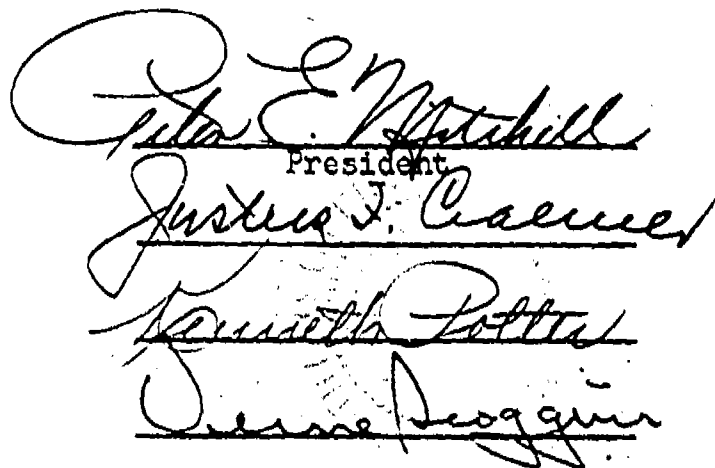 Peter E. Mitchell
President
Justus F. Craemer
Kenneth Potter
Verne Scoggins